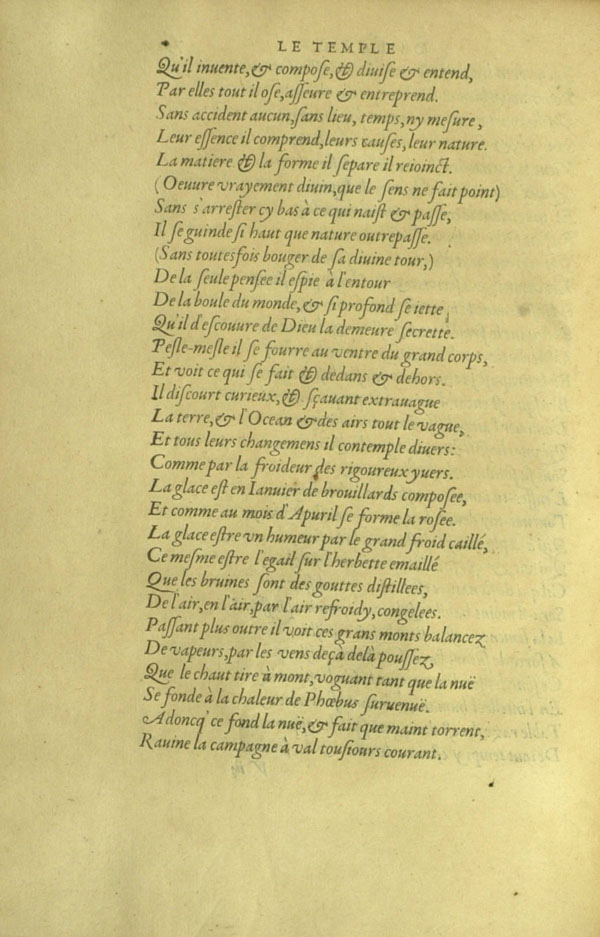 LE TEMPLE
Qu'il inuente, & compoſe, & diuiſe & entend,
Par elles tout il oſe, aſſeure & entreprend.
Sans accident aucun, ſans lieu, temps, ny meſure,
Leur eſſence il comprend, leurs cauſes, leur nature.
La matiere & la forme il ſepare il reioinct.
(Oeuure vrayement diuin, que le ſens ne fait point)
Sans s'arreſter cy bas à ce qui naiſt & paſſe,
Il ſe guinde ſi haut que nature outrepaſſe.
(Sans toutesfois bouger de ſa diuine tour,)
De la ſeule penſee il eſpie à l'entour
De la boule du monde, & ſi profond ſe iette,
Qu'il d'eſcouure de Dieu la demeure ſecrette.
Peſle-meſle il ſe fourre au ventre du grand corps,
Et voit ce qui ſe fait & dedans & dehors.
Il diſcourt curieux, & ſçauant extrauague
La terre, & l'Ocean & des airs tout le vague,
Et tous leurs changemens il contemple diuers:
Comme par la froideur des rigoureux yuers.
La glace eſt en Ianuier de brouillards compoſee,
Et comme au mois d'Apuril ſe forme la roſee.
La glace eſtre vn humeur par le grand froid caillé,
Ce meſme eſtre l'egail ſur l'herbette emaillé
Que les bruines ſont des gouttes diſtillees,
De l'air, en l'air, par l'air refroidy, congelees.
Paſſant plus outre il voit ces grans monts balancez
De vapeurs, par les vens deçà delà pouſſez,
Que le chaut tire à mont, voguant tant que la nuë
Se fonde à la chaleur de Phœbus ſuruenuë.
Adoncq' ce fond la nuë, & fait que maint torrent,
Rauine la campagne à val touſiours courant.